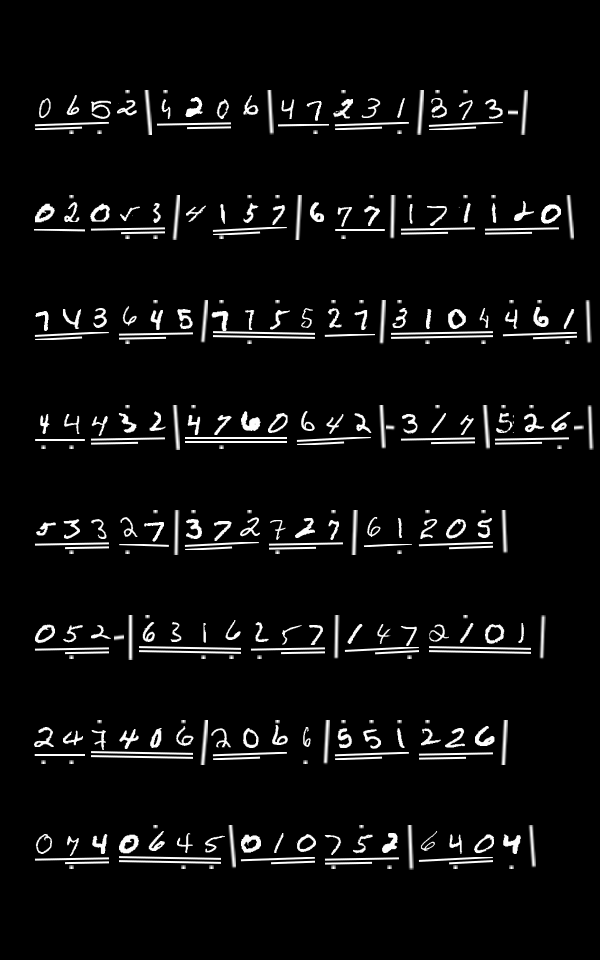 0652|4206|47231|373-|
02053|4157|677|171120|
743645|775527|3104461|
44432|4760642-|317|526-|
53327|372727|61205|
052-|6316257|1472101|
247406|2066|551226|
0740645|010752|6404|